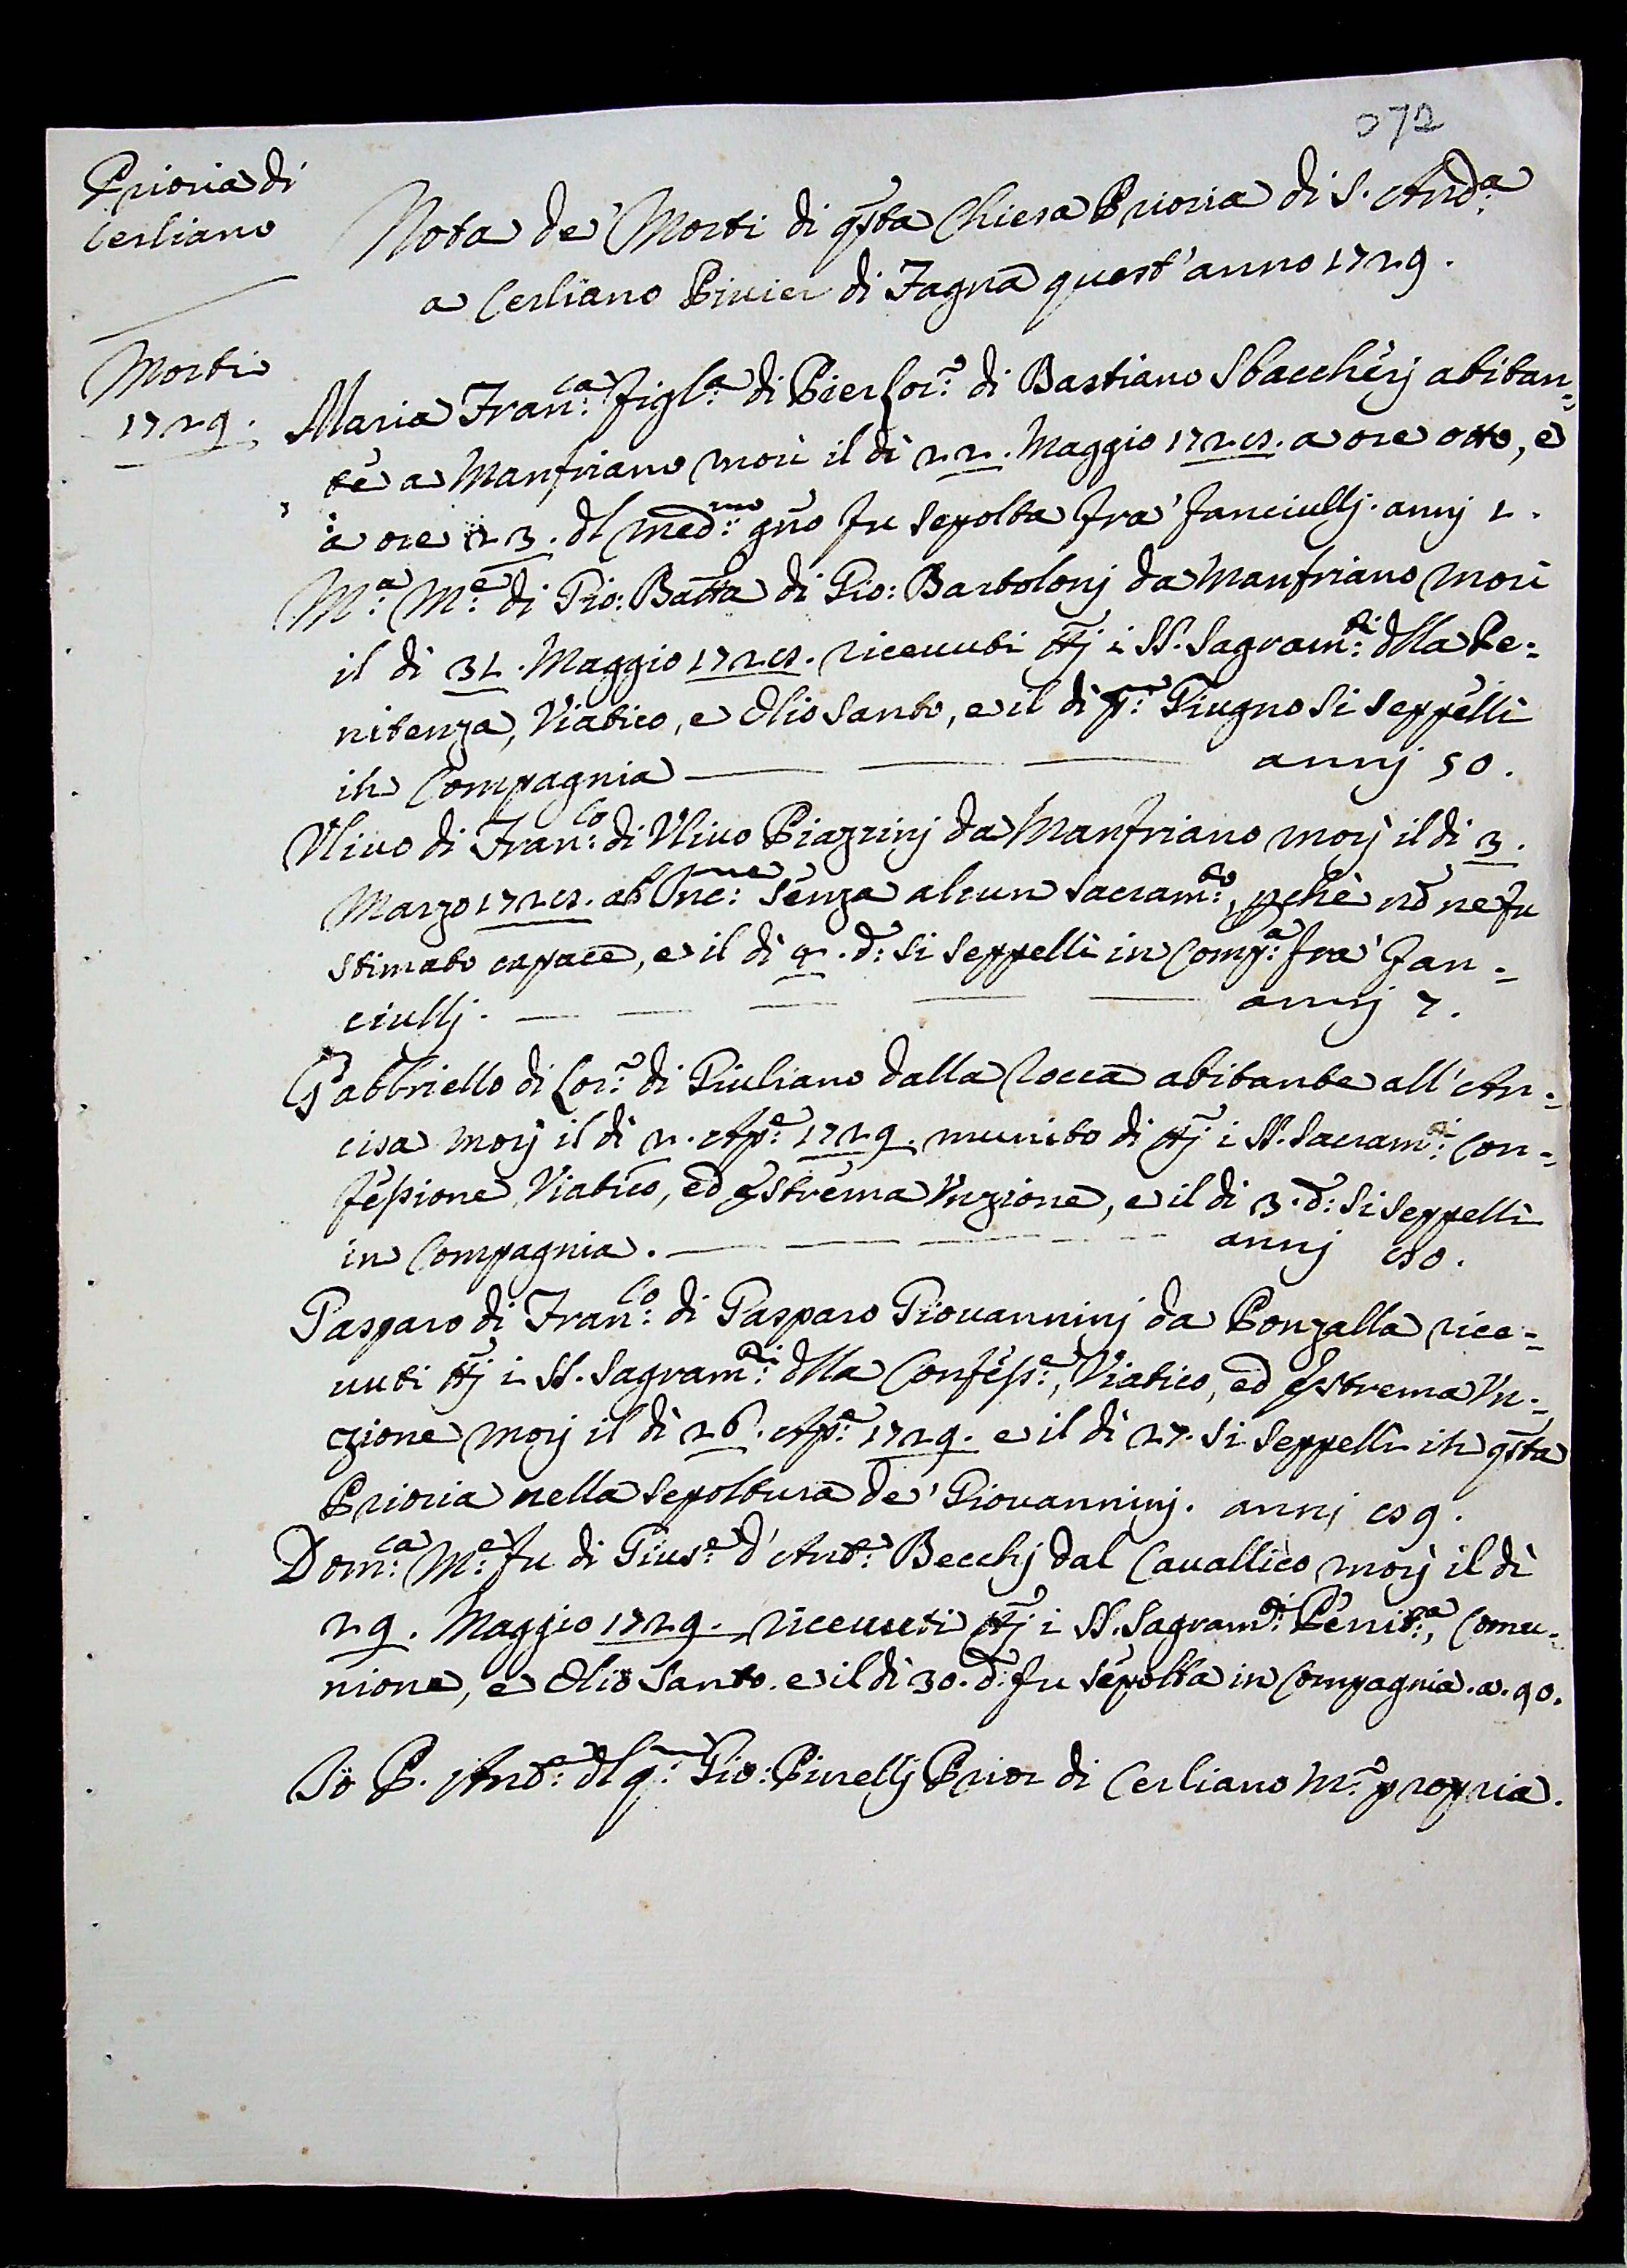 072
Prioria di
Cerliano
Nota de' Morti di qsta Chiesa Prioria di S. And:a
a Cerliano Pivier di Fagna quest'anno 1729.
Morti
1729.
Maria Fran:ca figl:a di Pier Lor:o di Bastiano Sbaccherj abitan=
te a Manfriano morì il dì 22. Maggio 1728. a ore otto, e
a ore 23. dl med:mo gno fu sepolta fra' fanciullj. annj 1.
M:a M:e di Gio: Batta di Gio: Bartolonj da Manfriano morì
il dì 31. Maggio 1728. ricevuti ttj i SS. Sagram:ti dlla Pe=
nitenza, Viatico, e Olio Santo, e il dì p:o Giugno si seppellì
in Compagnia — — — annj 50.
Ulivo di Fran:co di Ulivo Piazzinj da Manfriano morj il dì 3.
Marzo 1728. ab Inc:ne senza alcun Sacram:to, pchè nō ne fu
stimato capace, e il dì 4. d: si seppellì in Comp:a fra' fan=
ciullj. — — — — — annj 7.
Gabbriello di Lor:o di Giuliano dalla Rocca abitante all'An=
cisa morj il dì 2. Ap:e 1729. munito di ttj i SS. Sacram:ti Con=
fessione, Viatico, ed Estrema Unzione, e il dì 3. d: si seppellì
in Compagnia. — — — — annj 80.
Gasparo di Fran:co di Gasparo Giovanninj da Ponzalla rice=
vuti ttj i SS. Sagram:ti dlla Confess:e, Viatico, ed Estrema Un=
zione morj il dì 26. Ap:e 1729. e il dì 27. si seppellì in qsta
Prioria nella sepoltura de' Giovanninj. annj 89.
Dom:ca M:e fu di Gius:e d'Ant:o Becchj dal Cavallico morj il dì
29. Maggio 1729. ricevuti ttj i SS. Sagram:ti Penit:a, Comu=
nione, e Olio Santo. e il dì 30. d: fu sepolta in Compagnia. a. 90.
Io P. Ant:o dl q: Gio: Pinellj Prior di Cerliano M:o propria.